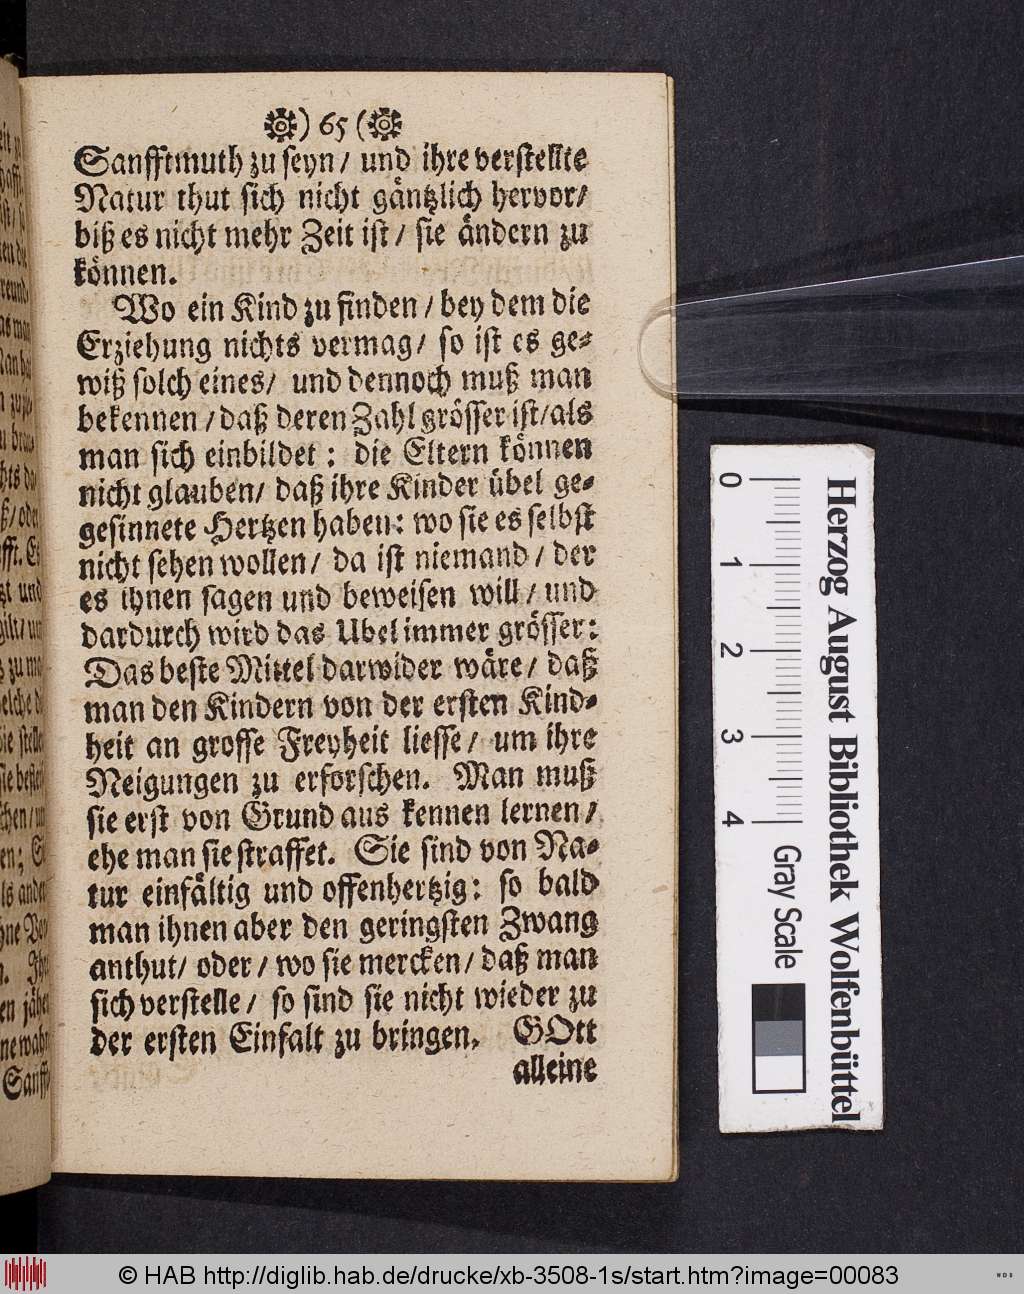 ) 65 (
Sanfftmuth zu seyn/ und ihre verstellte
Natur thut sich nicht gäntzlich hervor/
biß es nicht mehr Zeit ist/ sie ändern zu
können.
Wo ein Kind zu finden/ bey dem die
Erziehung nichts vermag/ so ist es ge-
wiß solch eines/ und dennoch muß man
bekennen/ daß deren Zahl grösser ist/ als
man sich einbildet: die Eltern können
nicht glauben/ daß ihre Kinder übel ge-
gesinnete Hertzen haben: wo sie es selbst
nicht sehen wollen/ da ist niemand/ der
es ihnen sagen und beweisen will/ und
dardurch wird das Ubel immer grösser:
Das beste Mittel darwider wäre/ daß
man den Kindern von der ersten Kind-
heit an grosse Freyheit liesse/ um ihre
Neigungen zu erforschen. Man muß
sie erst von Grund aus kennen lernen/
ehe man sie straffet. Sie sind von Na-
tur einfältig und offenhertzig: so bald
man ihnen aber den geringsten Zwang
anthut/ oder/ wo sie mercken/ daß man
sich verstelle/ so sind sie nicht wieder zu
der ersten Einfalt zu bringen. GOtt
alleine
0 1 2 3 4 Gray Scale
Herzog August Bibliothek Wolfenbüttel
© HAB http://diglib.hab.de/drucke/xb-3508-1s/start.htm?image=00083